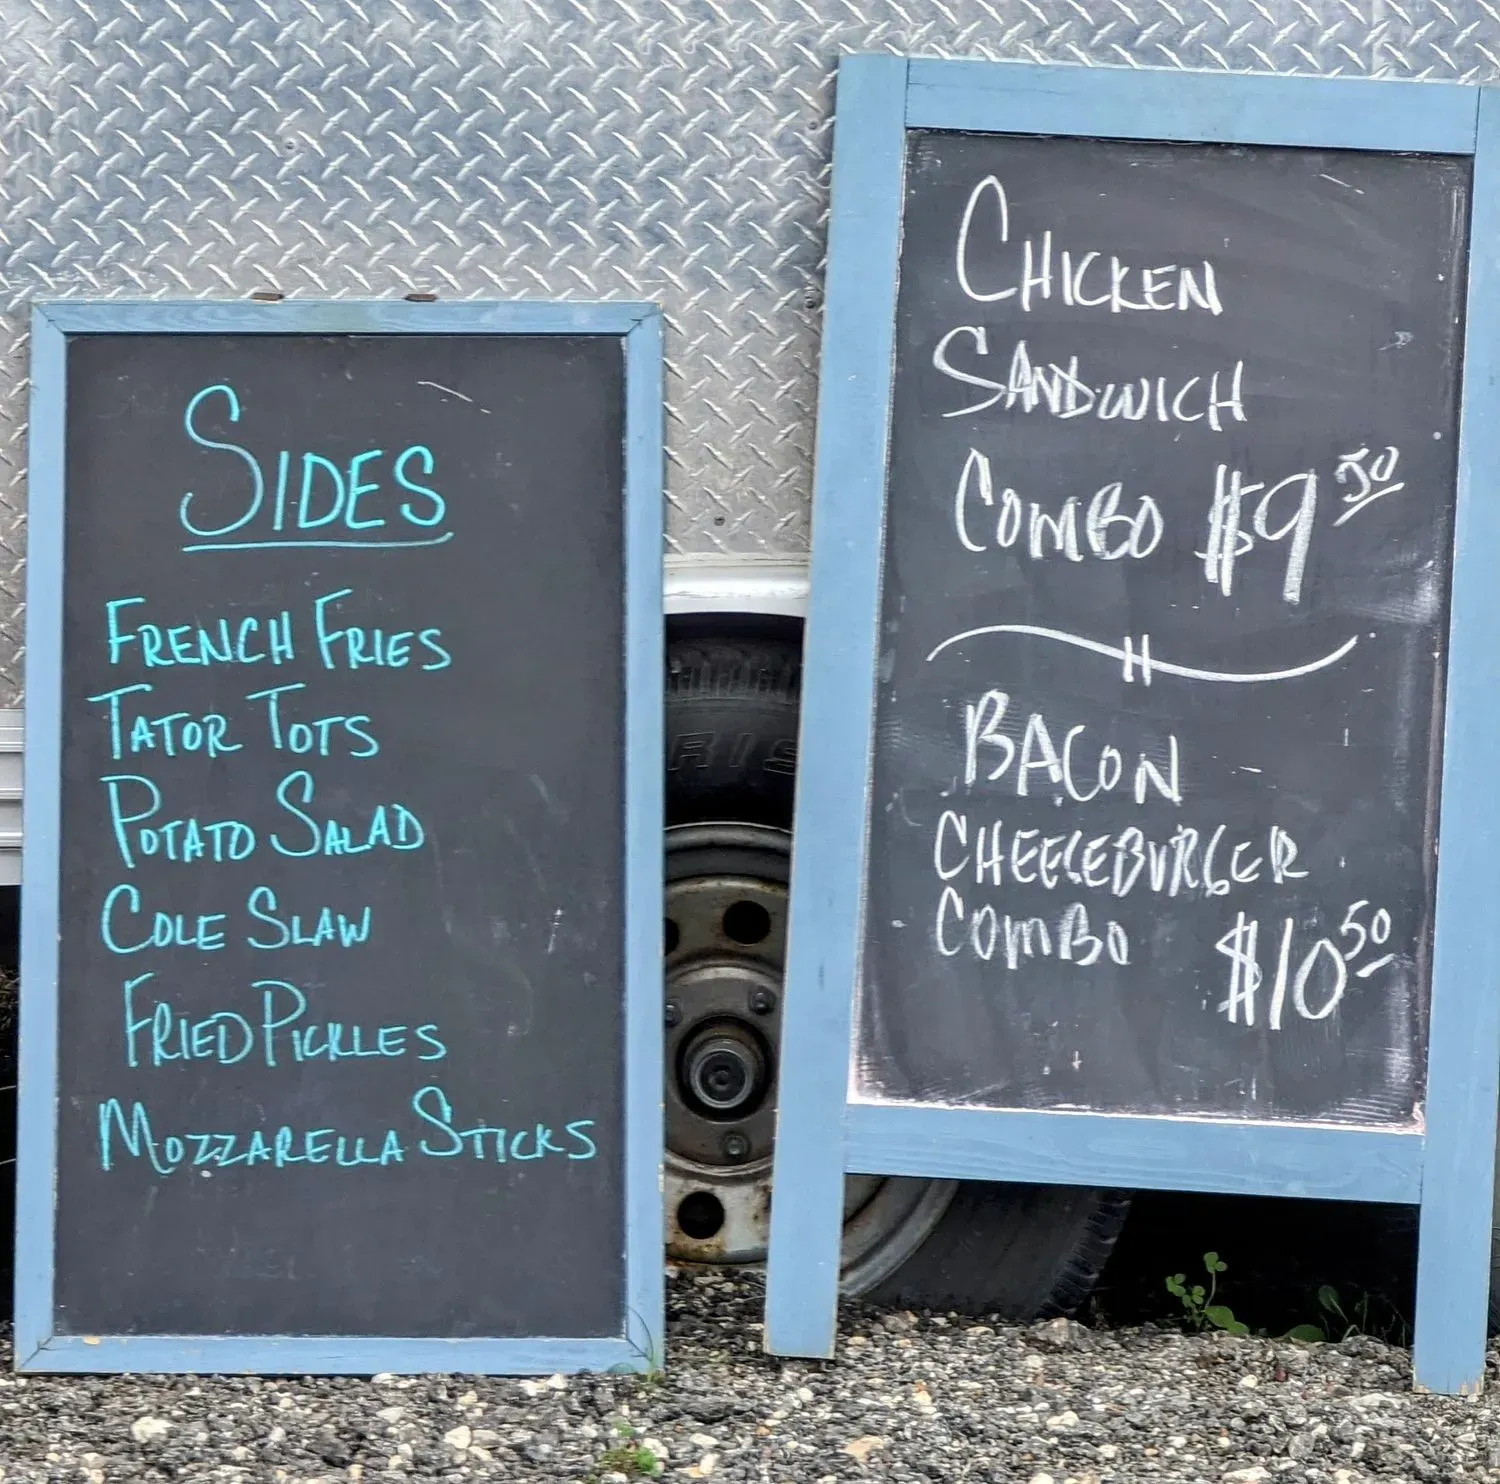 SIDES
FRENCH FRIES
TATOR TOTS
POTATO SALAD
COLE SLAW
FRIED PICKLES
MOZZARELLA STICKS
CHICKEN
SANDWICH
COMBO $9 50
BACON
CHEESEBURGER
COMBO $10 50